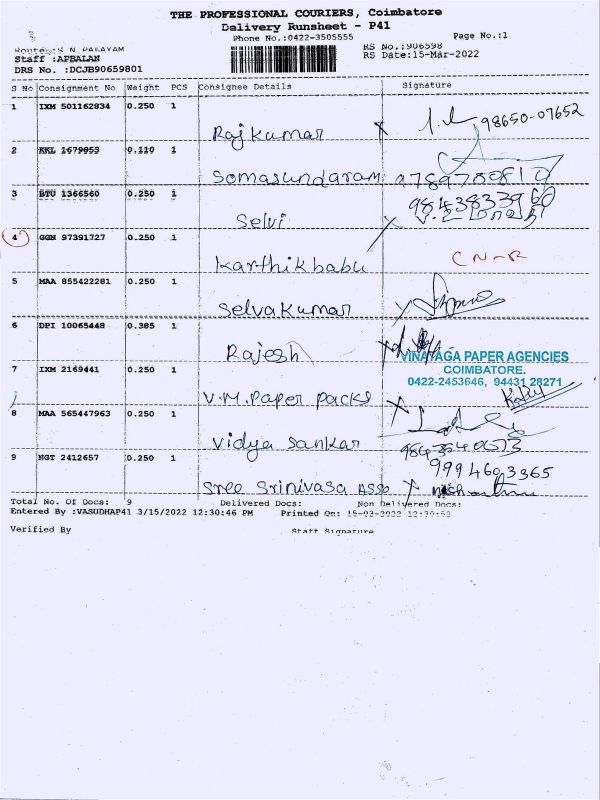 THE PROFESSIONAL COURIERS, Coimbatore
Delivery Runsheet - P41
Phone No.:0422-3505555 Page No.:1
Route: S N PALAYAM RS No.:906598
Staff :APBALAN RS Date:15-Mar-2022
DRS No. :DCJB90659801
S No Consignment No Weight PCS Consignee Details Signature
1 IXM 501162834 0.250 1
Rajkumar 98650-07652
2 KKL 1679953 0.110 1
Somasundaram
3 BTU 1366560 0.250 1
Selvi 9843833960
4 GGN 97391727 0.250 1
Karthikbabu CN-R
5 MAA 855422281 0.250 1
Selvakumar
6 DPI 10065448 0.385 1
Rajesh
VINAYAGA PAPER AGENCIES
COIMBATORE.
0422-2453646, 94431 28271
7 IXM 2169441 0.250 1
V.M.Paper Packs
8 MAA 565447963 0.250 1
Vidya Sankar
9 NGT 2412657 0.250 1
9994603365
Sree Srinivasa Asso
Total No. Of Docs: 9 Delivered Docs: Non Delivered Docs:
Entered By :VASUDHAP41 3/15/2022 12:30:46 PM Printed On: 15-03-2022 12:30:53
Verified By Staff Signature